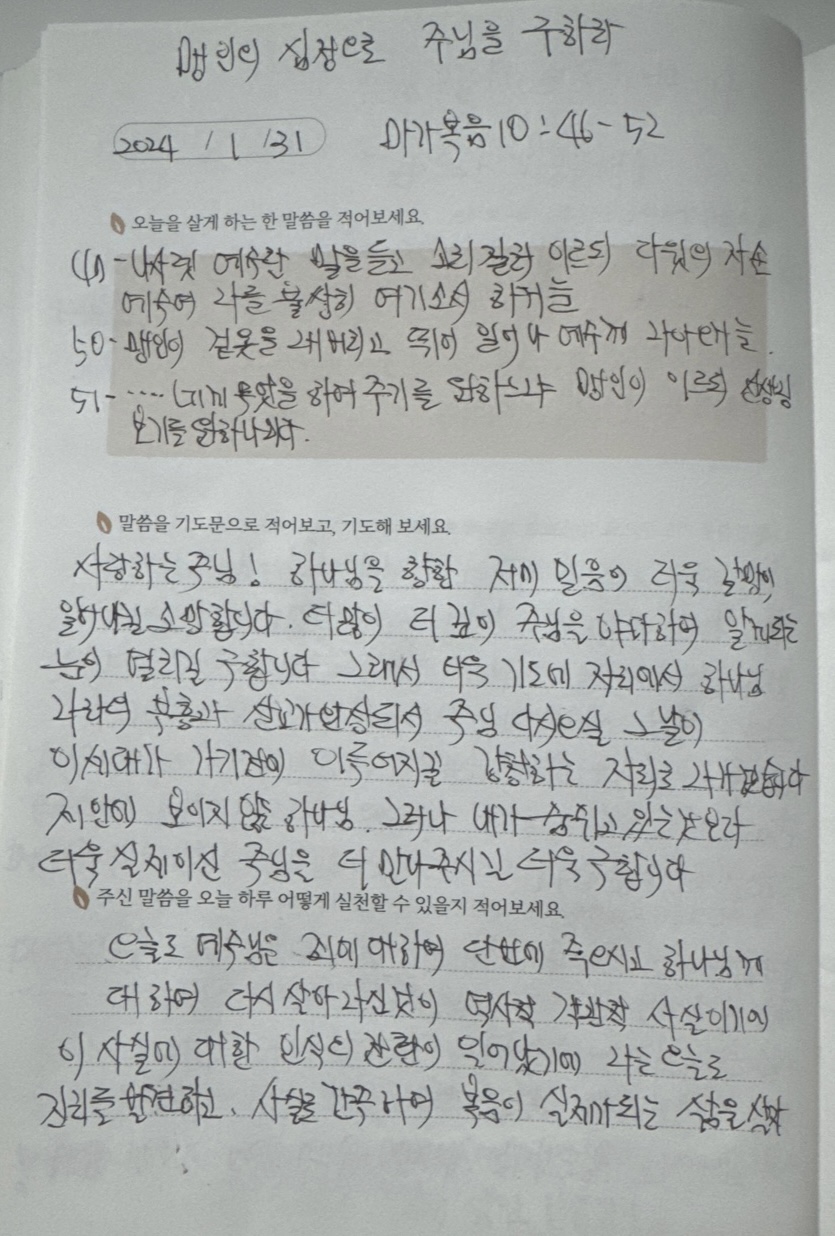 맹인의 심정으로 주님을 구하라
2024 / 1 / 31 마가복음 10:46-52
오늘을 살게 하는 한 말씀을 적어보세요.
나사렛 예수란 말을 듣고 소리 질러 이르되 다윗의 자손
예수여 나를 불쌍히 여기소서 하거늘
50- 맹인이 겉옷을 내버리고 뛰어 일어나 예수께 나아오거늘.
51- .... 네게 무엇을 하여 주기를 원하느냐 맹인이 이르되 선생님
보기를 원하나이다.
말씀을 기도문으로 적어보고, 기도해 보세요.
사랑하는 주님! 하나님을 향한 저의 믿음이 더욱 갈망이
일어나길 소망합니다. 더 많이 더 깊이 주님을 알게되는
눈이 열리길 구합니다 그래서 더욱 기도에 자리에서 하나님
나라의 부흥과 선교가 완성되서 주님 다시오실 그날이
이 세대가 가기전에 이루어지길 갈망하는 자리로 나가겠습니다
제 안에 보이지 않는 하나님. 그러나 내가 숨쉬고 있는것보다
더욱 실제이신 주님을 더 만나주시길 더욱 구합니다
주신 말씀을 오늘 하루 어떻게 실천할 수 있을지 적어보세요.
오늘도 예수님은 죄에 대하여 단번에 죽으시고 하나님께
대하여 다시 살아나신것이 역사적 객관적 사실이기에
이 사실에 대한 인식의 전환이 일어났기에 나는 오늘도
진리를 발견하고, 사실로 간주하며 복음이 실제가 되는 삶을 살자